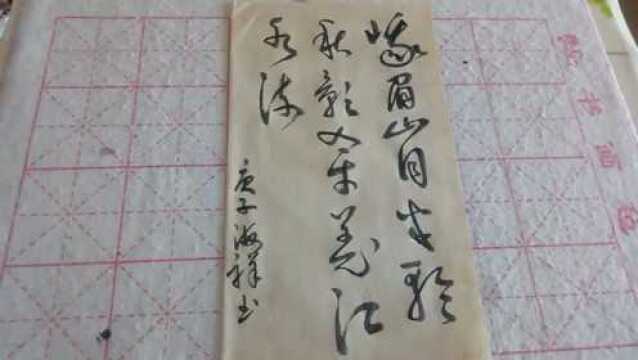 峨眉山月半轮
秋影入平羌江
水流
庚子海祥书